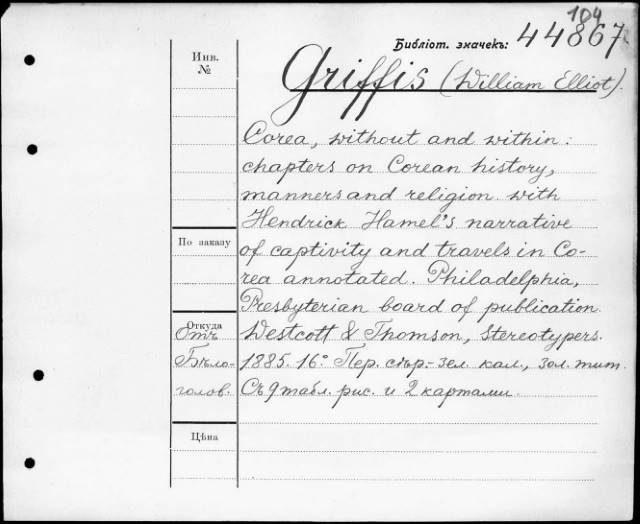 104
Библіот. значекъ: 44867
Инв.
№
Griffis (William Elliot).
Corea, without and within:
chapters on Corean history,
manners and religion. with
Hendrick Hamel's narrative
По заказу
of captivity and travels in Co-
rea annotated. Philadelphia,
Presbyterian board of publication
Откуда
Отъ
Westcott & Thomson, Stereotypers.
Бѣло-
1885. 16° Пер. сѣр.-зел. кал., зол. тит.
голов.
Съ 9 табл. рис. и 2 картами.
Цѣна